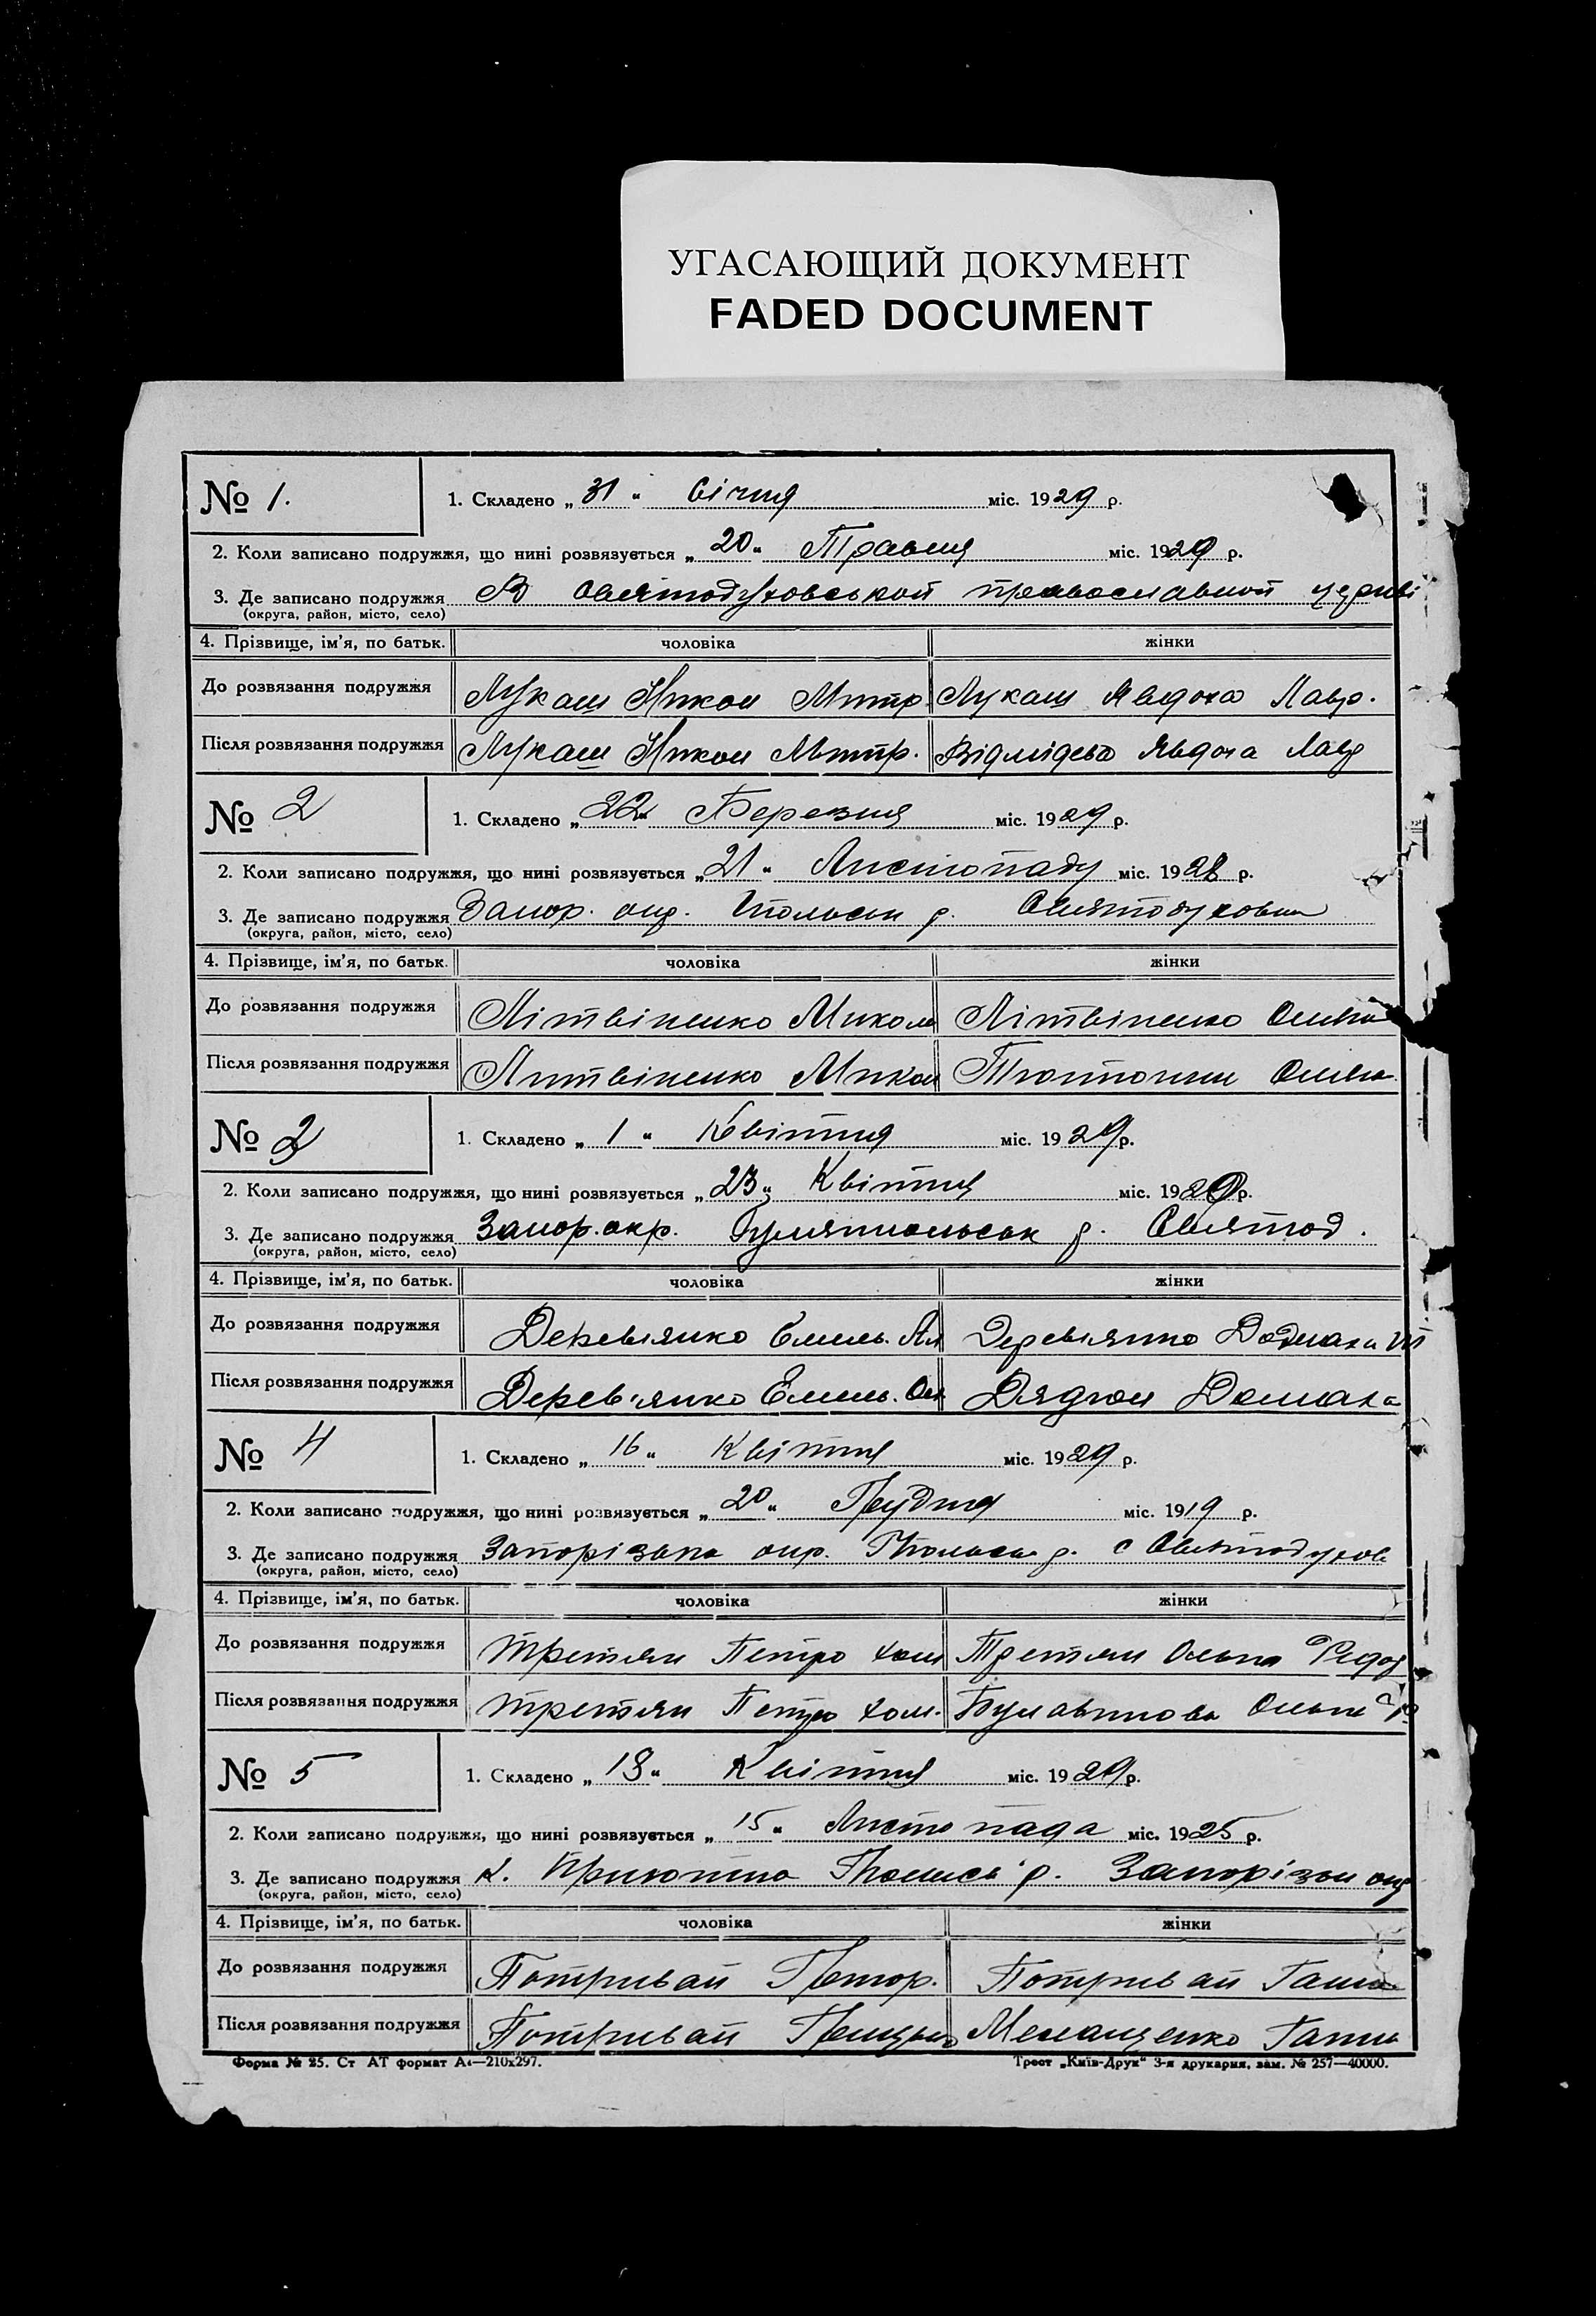 УГАСАЮЩИЙ ДОКУМЕНТ
FADED DOCUMENT
№ 1. 1. Складено „31“ січня міс. 1929 р.
2. Коли записано подружжя, що нині розвязується „20“ Травня міс. 1920 р.
3. Де записано подружжя В Святодуховськой православной церкві
(округа, район, місто, село)
4. Прізвище, ім'я, по батьк. чоловіка жінки
До розвязання подружжя Лукаш Никон Митр. Лукаш Явдоха Лавр.
Після розвязання подружжя Лукаш Никон Митр. Явдоха Лавр
№ 2 1. Складено „22“ Березня міс. 1929 р.
2. Коли записано подружжя, що нині розвязується „21“ Листопаду міс. 1928 р.
3. Де записано подружжя Запор. окр. р. Святодуховка
(округа, район, місто, село)
4. Прізвище, ім'я, по батьк. чоловіка жінки
До розвязання подружжя Літвіненко Микола Літвіненко
Після розвязання подружжя Литвіненко Микол
№ 2 1. Складено „1“ Квітня міс. 1929 р.
2. Коли записано подружжя, що нині розвязується „23“ Квітня міс. 19 р.
3. Де записано подружжя Запор. окр. р. Святод.
(округа, район, місто, село)
4. Прізвище, ім'я, по батьк. чоловіка жінки
До розвязання подружжя Деревянко Емель. Деревянко
Після розвязання подружжя Дерев'янко Емель. Домаха
№ 4 1. Складено „16“ Квітня міс. 1929 р.
2. Коли записано подружжя, що нині розвязується „20“ Грудня міс. 1919 р.
3. Де записано подружжя Запорізька окр. р. с Святодухов
(округа, район, місто, село)
4. Прізвище, ім'я, по батьк. чоловіка жінки
До розвязання подружжя Третяк Петро Хом Третяк Ольга Федор
Після розвязання подружжя Третяк Петро Хом. Булавинова Ольга
№ 5 1. Складено „18“ Квітня міс. 1929 р.
2. Коли записано подружжя, що нині розвязується „15“ Листопада міс. 1925 р.
3. Де записано подружжя р. Запорізьк окр
(округа, район, місто, село)
4. Прізвище, ім'я, по батьк. чоловіка жінки
До розвязання подружжя Потривай Потривай Ганна
Після розвязання подружжя Потривай Ганна
Форма № 25. Ст АТ формат А4—210х297. Трест „Київ-Друк“ 3-я друкарня, зам. № 257—40000.